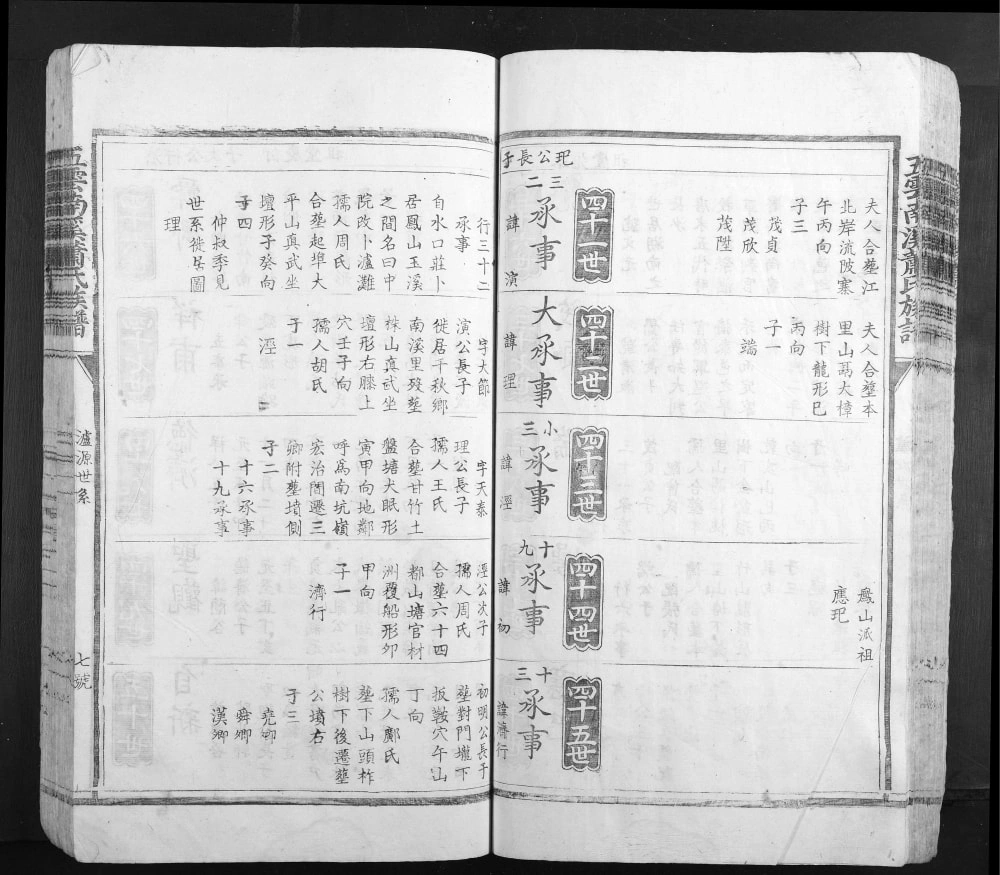 五雲南溪蕭氏族譜
夫人合塟江
北岸流陂寨
午丙向
子三
茂貞
茂欣
茂陞
夫人合塟本
里山鬲大樟
樹下龍形巳
丙向
子一
端
鳳山派祖
應玘
四十一世
四十二世
四十三世
四十四世
四十五世
玘公長子
三二承事
諱演
行三十二
承事
自水口莊卜
居鳳山玉溪
之間名曰中
院改卜瀘灘
孺人周氏
合塟起埠大
平山真武坐
壇形子癸向
子四
仲叔季見
世系徙居圖
理
大承事
諱理
字大節
演公長子
徙居千秋鄉
南溪里歿塟
株山真武坐
壇形右膝上
穴壬子向
孺人胡氏
子一
涇
小三承事
諱涇
字天泰
理公長子
孺人王氏
合塟甘竹土
盤塘犬眠形
寅甲向地鄰
呼為南坑嶺
宏治間遷三
卿附塟墳側
子二
十六承事
十九承事
十九承事
諱初
涇公次子
孺人周氏
合塟六十四
都山塘官村
洲覆船形夘
甲向
子一
濟行
十三承事
諱濟行
初明公長子
塟對門壠下
扳鞍穴午山
丁向
孺人鄺氏
塟下山頭柞
樹下後遷塟
公墳右
子三
堯卿
舜卿
漢卿
瀘源世系
七號
五雲南溪蕭氏族譜